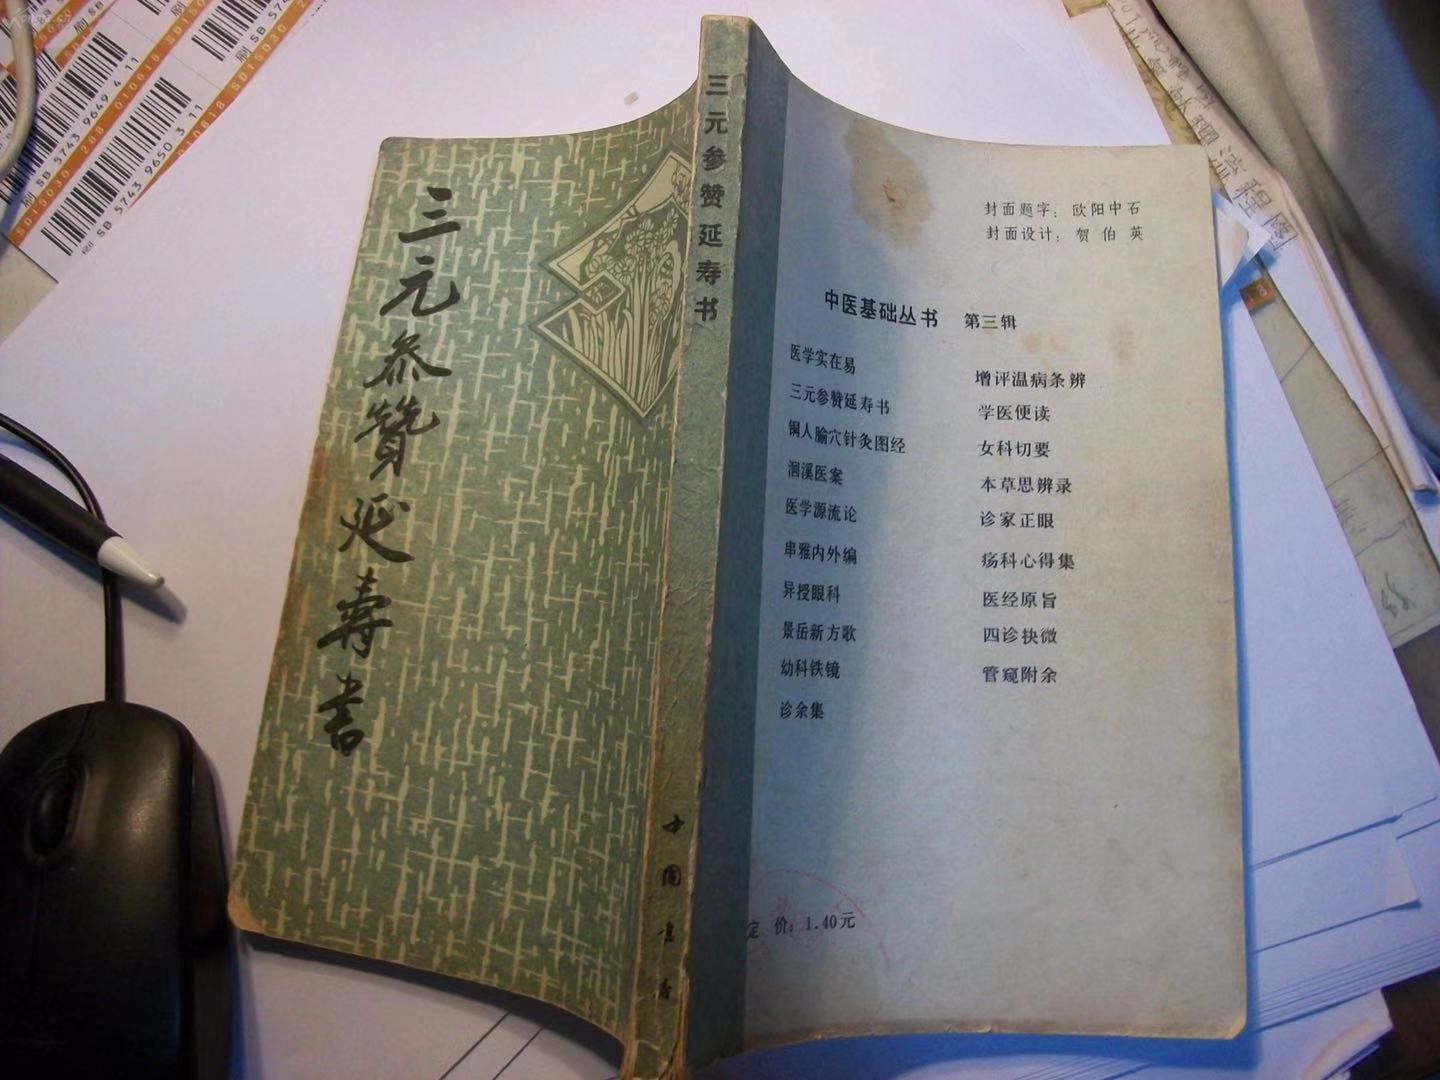 三元参贊延壽書
三元参赞延寿书
中國書店
封面题字：欧阳中石
封面设计：贺伯英
中医基础丛书 第三辑
医学实在易
三元参赞延寿书
铜人腧穴针灸图经
洄溪医案
医学源流论
串雅内外编
异授眼科
景岳新方歌
幼科铁镜
诊余集
增评温病条辨
学医便读
女科切要
本草思辨录
诊家正眼
疡科心得集
医经原旨
四诊抉微
管窥附余
定价：1.40元
刷 SB 5743 9649 4 11
SD15030 288 010618 SD15030
刷 SB 5743 9650 3 11